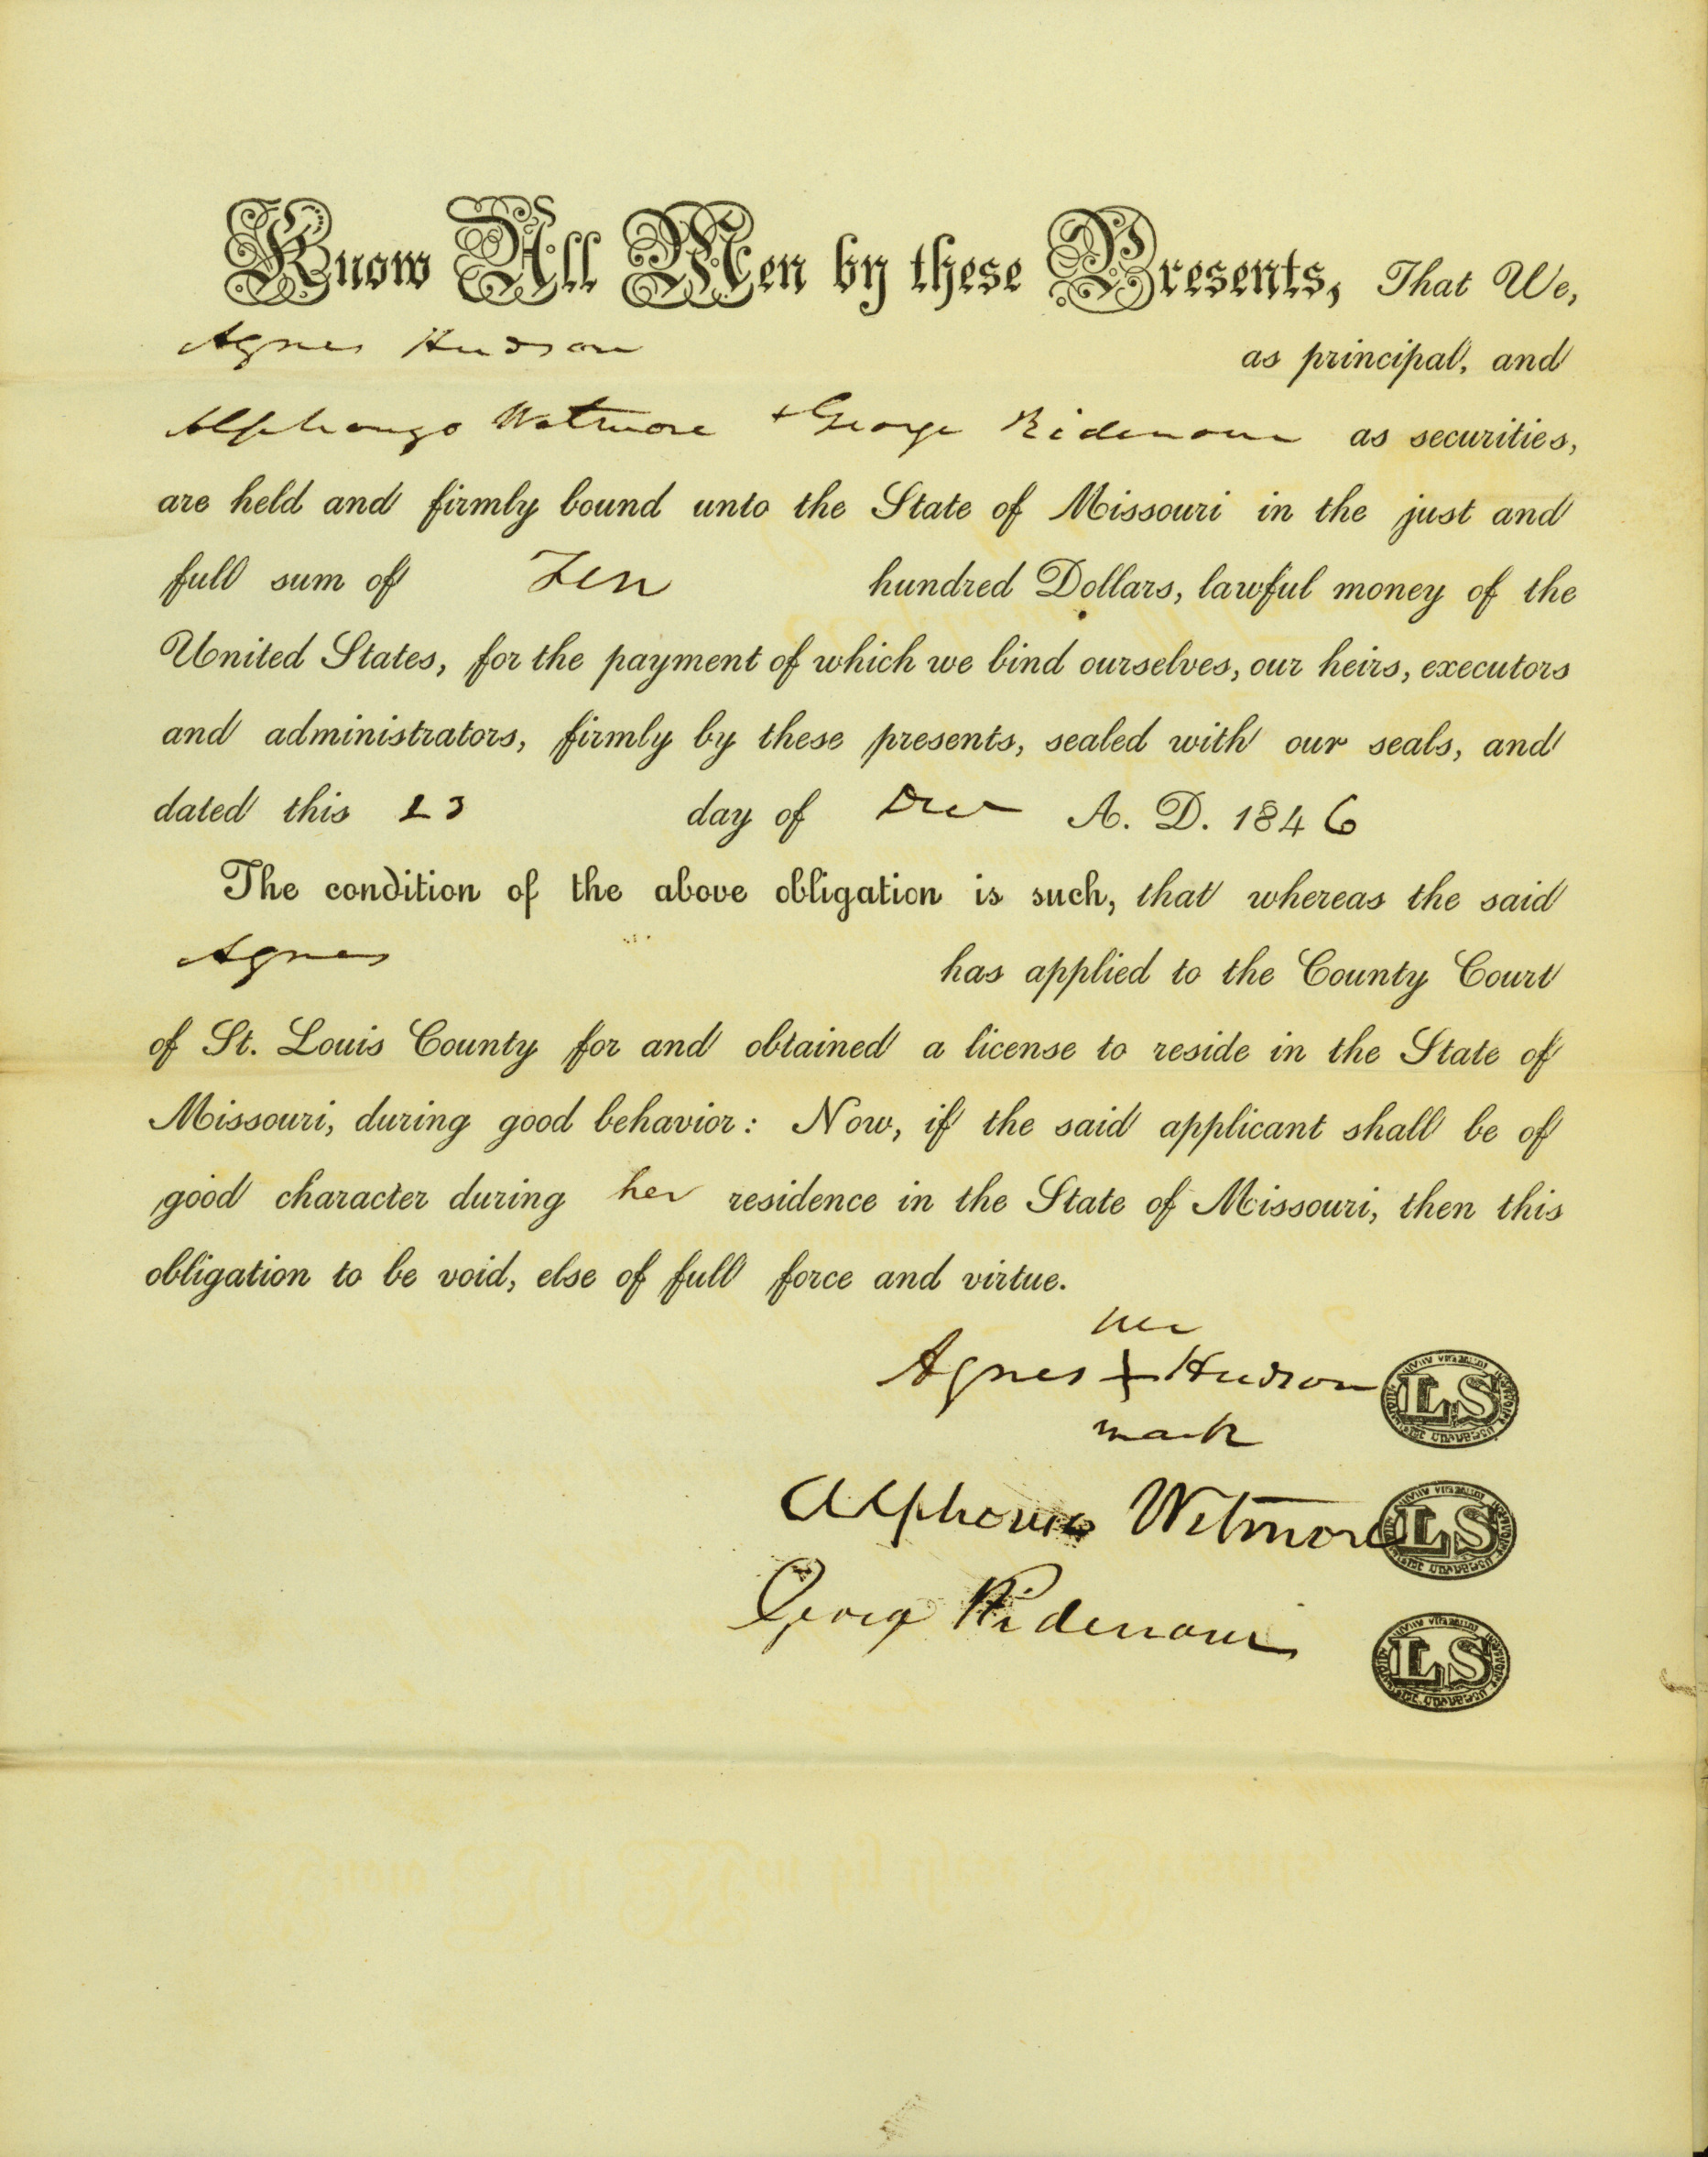 Know All Men by these Presents, That We,
Agnes Hudson as principal, and
Alphonzo Watmore + George Ridenour as securities,
are held and firmly bound unto the State of Missouri in the just and
full sum of Ten hundred Dollars, lawful money of the
United States, for the payment of which we bind ourselves, our heirs, executors
and administrators, firmly by these presents, sealed with our seals, and
dated this 23 day of Dec A. D. 1846
The condition of the above obligation is such, that whereas the said
Agnes has applied to the County Court
of St. Louis County for and obtained a license to reside in the State of
Missouri, during good behavior: Now, if the said applicant shall be of
good character during her residence in the State of Missouri, then this
obligation to be void, else of full force and virtue.
her
Agnes + Hudson LS
mark
Alphonso Wetmore LS
George Ridenour LS